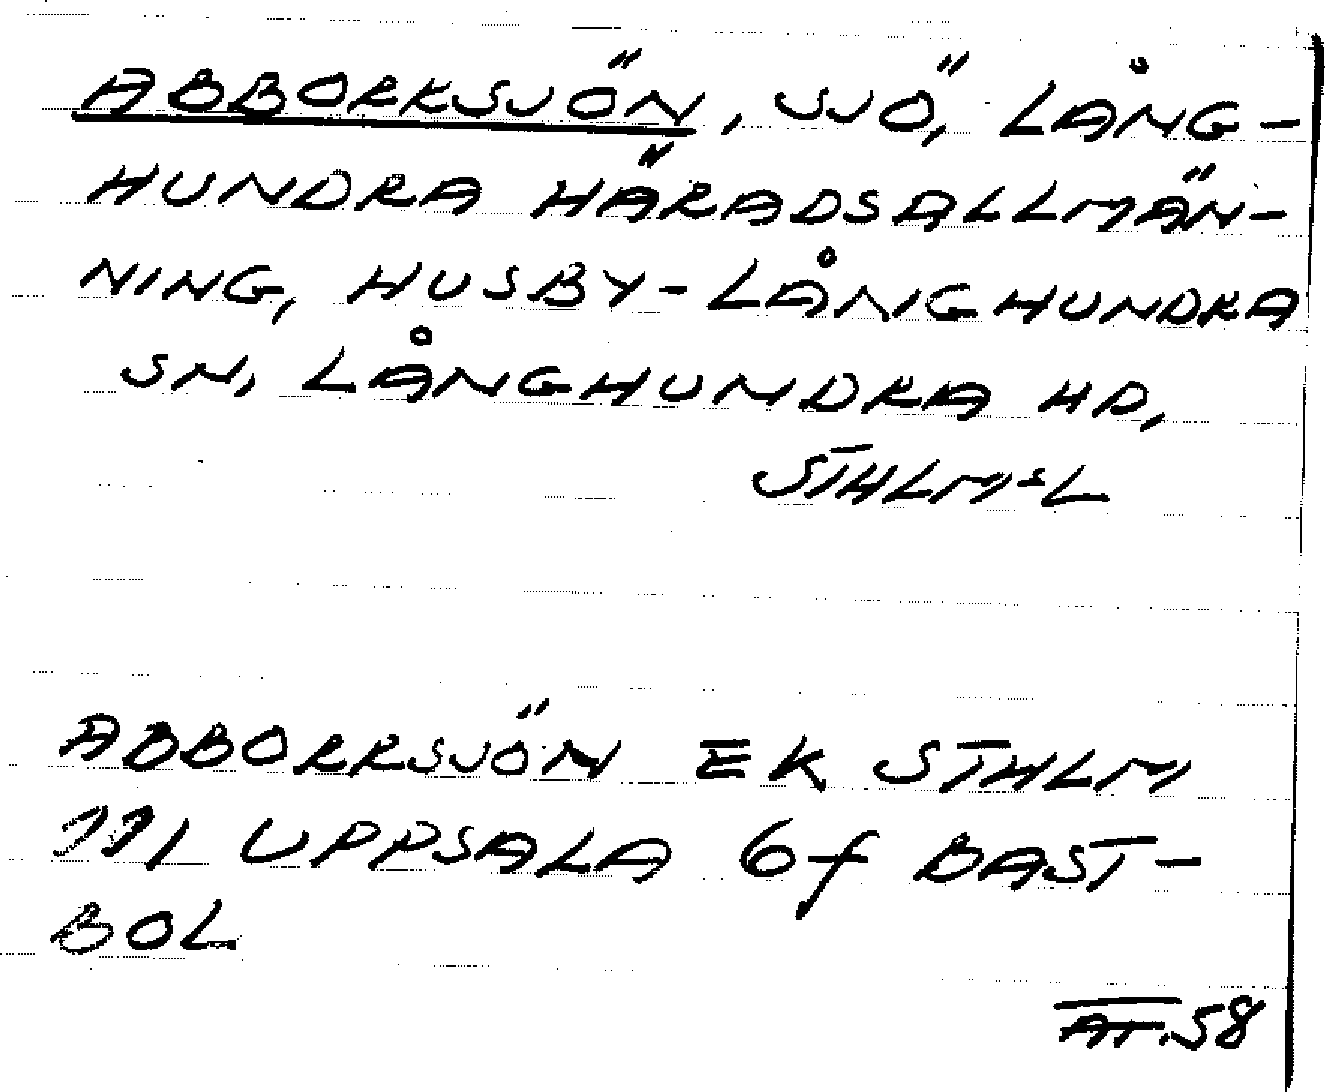 ABBORRSJÖN, SJÖ, LÅNG-
HUNDRA HÄRADSALLMÄN-
NING, HUSBY-LÅNGHUNDRA
SN, LÅNGHUNDRA HD,
STHLMSL
ABBORRSJÖN EK STHLM
111 UPPSALA 6f BAST-
BOL
AT.58